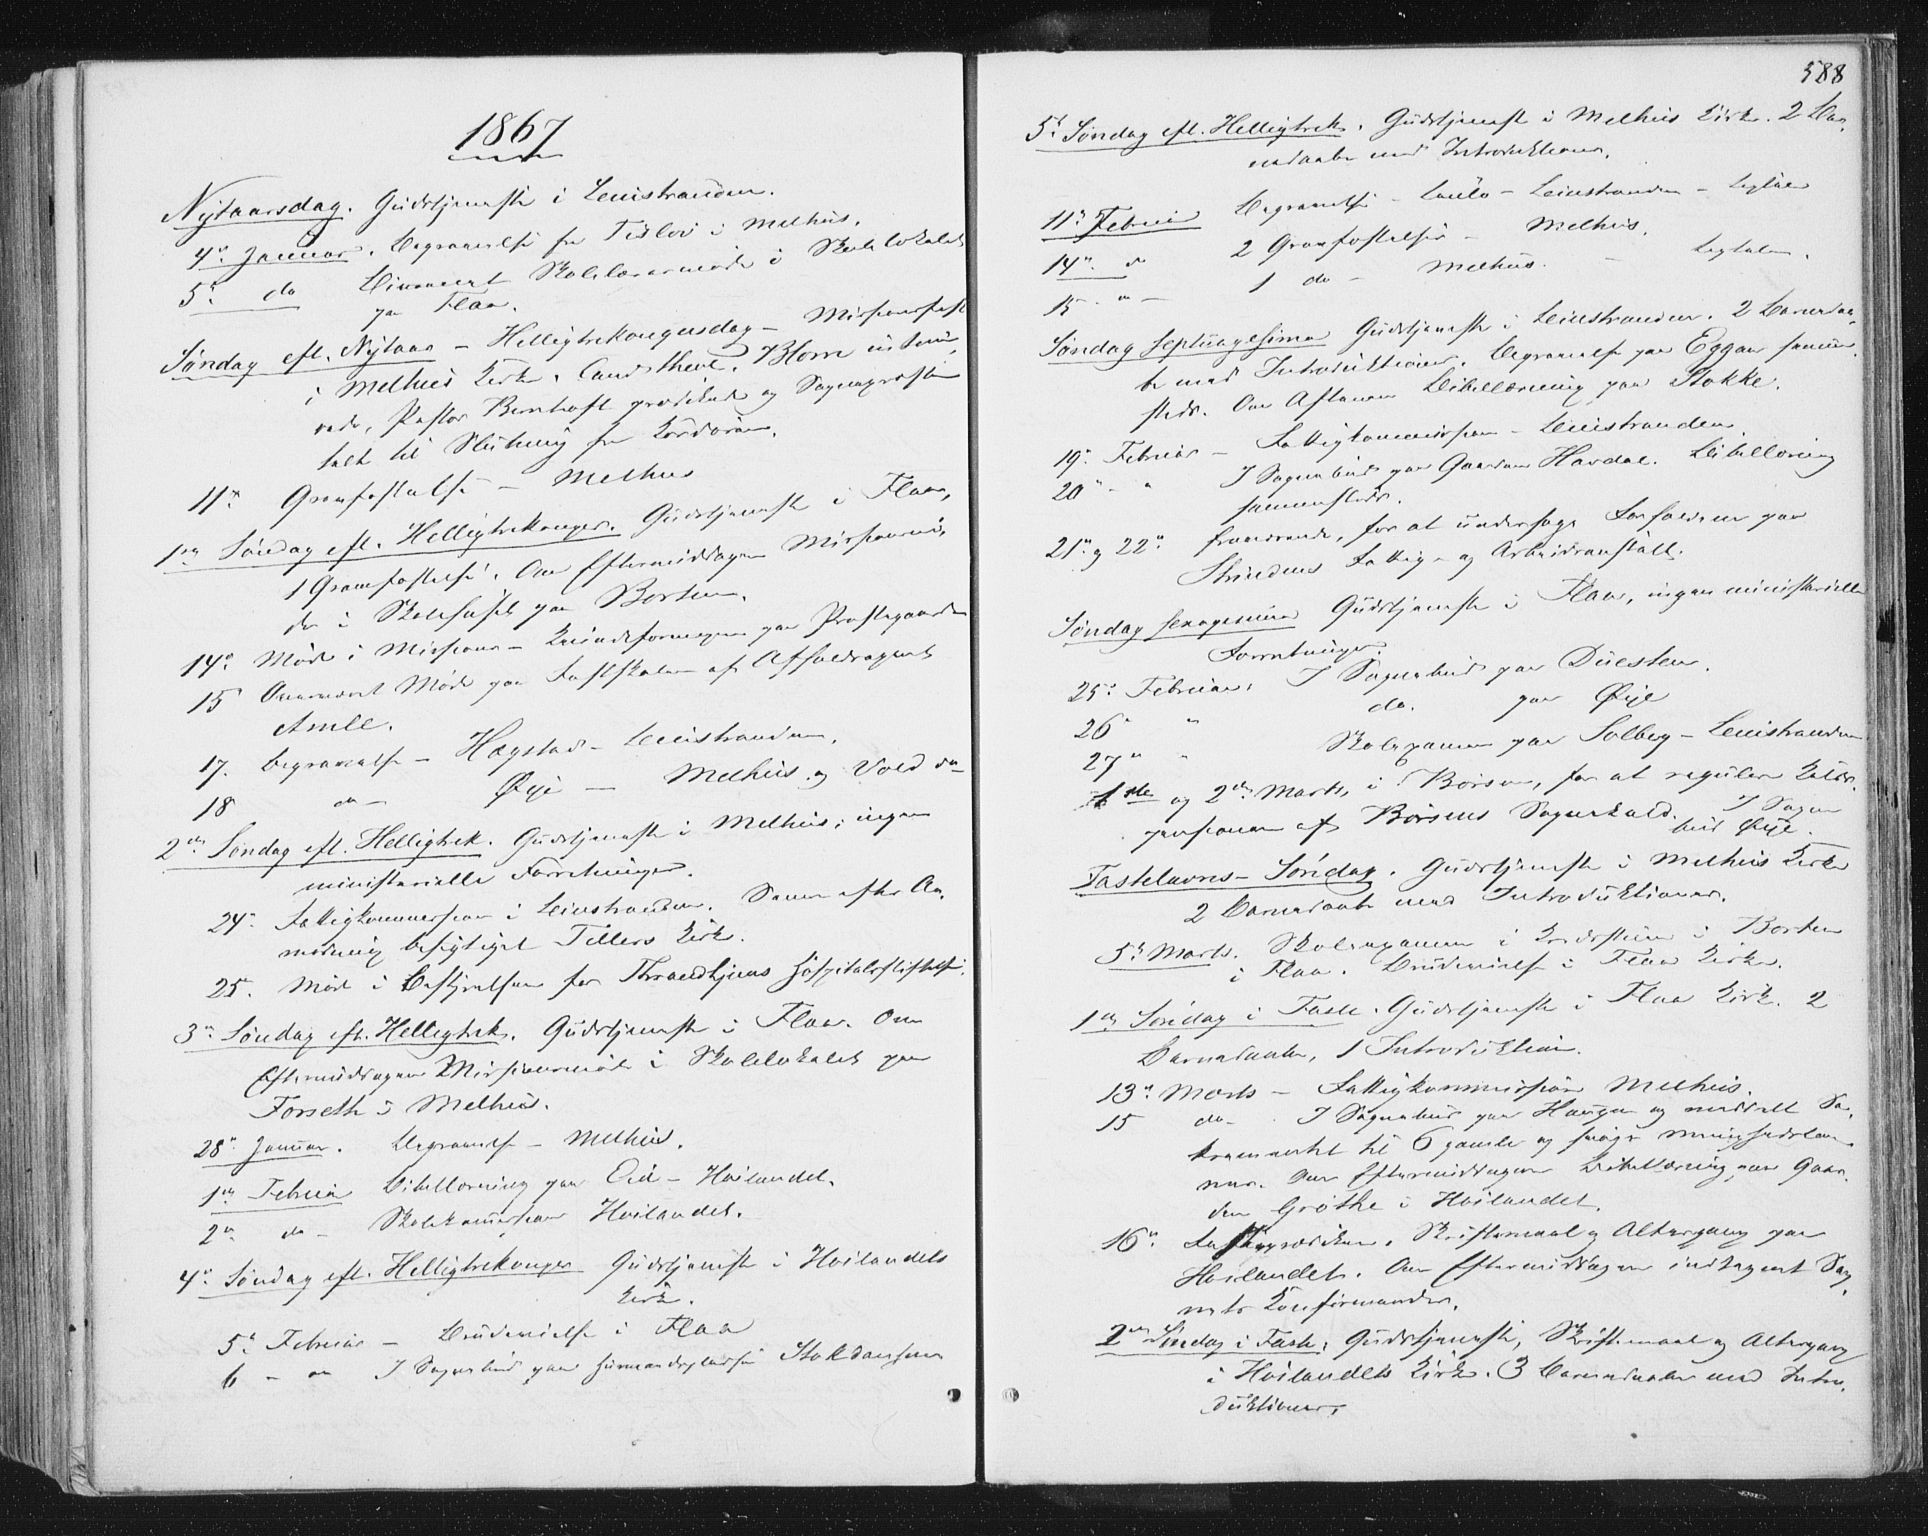 1867
Nytaarsdag. Gudstjeneste i Leinstranden.
4de Januar. Begravelse fra Teslov i Melhus.
5te do Bivaanet Skolelærermøde i Skolelokalet
paa Flaa.
Søndag eft. Nytaar – Helligtrekongersdag – Missionsfest
i Melhus Kirke. Cand. theol. Blom
Pastor Bernhoft prædikede og Sognepræsten
talt til Slutning fra Kordøren.
11te Gravfæstelse – Melhus
1ste Søndag eft. Helligtrekonger. Gudstjeneste i Flaa,
1 Gravfæstelse. Om Eftermiddagen Missionsmø-
de i Skolehuset paa Borten.
14de Møde i Missions-Kvindeforeningen paa Præstegaarden
15 Overværet Møde paa Fastskolen af Afholdsagent
Amle.
17. Begravelse – Hagstad – Leinstranden.
18 do – Øye – Melhus og Vold do –
2den Søndag eft. Helligtrek. Gudstjeneste i Melhus; ingen
ministerielle Forretninger.
24de Fattigkommission i Leinstranden. Samme efter An-
modning besigtiget Tillers Kirke.
25. Møde i Bestyrelsen for Throndhjems Hospitalsstiftelse.
3de Søndag eft. Helligtrek. Gudstjeneste i Flaa. Om
Eftermiddagen Missionsmøde i Skolelokalet paa
Forseth i Melhus.
28de Januar. Begravelse – Melhus.
1ste Februar Bibellæsning paa Eid – Høilandet.
2den do – Skolekommission Høilandet.
4de Søndag eft. Helligtrekonger Gudstjeneste i Høilandets
Kirke.
5te Februar – Brudevielse i Flaa
6 – " I Sognebud paa Huusmandspladsen Stokdansen
588
5te Søndag eft. Helligtrek. Gudstjeneste i Melhus Kirke. 2 Bar-
nedaabe med Introduktioner.
11te Februar Begravelse – Caulo – Leinstranden – Ligtale
14de do 2 Gravfæstelser – Melhus.
15 – " – 1 do – Melhus. – Ligtale.
Søndag Septuagesima Gudstjeneste i Leinstranden. 2 Barnedaa-
be med Introduktioner. Begravelse paa Eggan samme-
steds. Om Aftenen Bibellæsning paa Stokke.
19de Februar – Fattigkommission – Leinstranden
20 " – " I Sognebud paa Gaarden Havdal. Bibellæsning
sammesteds.
21de og 22de fraværende, for at undersøge Forholdene paa
Strindens Fattig- og Arbeidsanstalt.
Søndag Sexagesima Gudstjeneste i Flaa, ingen ministerielle
Forretninger.
25de Februar. I Sognebud paa Duesten.
26 " do. paa Øye
27 " " Skolexamen paa Solberg – Leinstranden
1ste og 2den Marts, i Børsen, for at regulere Enke-
pensionen af Børsens Sognekald. I Sogne-
bud Øye.
Fastelavns-Søndag. Gudstjeneste i Melhus Kirke
2 Barnedaabe med Introduktioner.
5te Marts. Skolexamen i Kredsskolen i Borten
i Flaa. Brudevielse i Flaa Kirke.
1ste Søndag i Faste. Gudstjeneste i Flaa Kirke. 2
Barnedaabe, 1 Introduktion.
13de Marts – Fattigkommission Melhus.
15 do – I Sognebud paa Haugen og meddelt Sa-
kramentet til 6 gamle og svage Menighedslem-
mer. Om Eftermiddagen Bibellæsning paa Gaar-
den Grøthe i Høilandet.
16de Fasteprædiken, Skriftemaal og Altergang paa
Høilandet. Om Eftermiddagen indtegnet Sog-
nets Konfirmander.
2den Søndag i Faste. Gudstjeneste, Skriftemaal og Altergang
i Høilandets Kirke. 3 Barnedaabe med Intro-
duktioner.